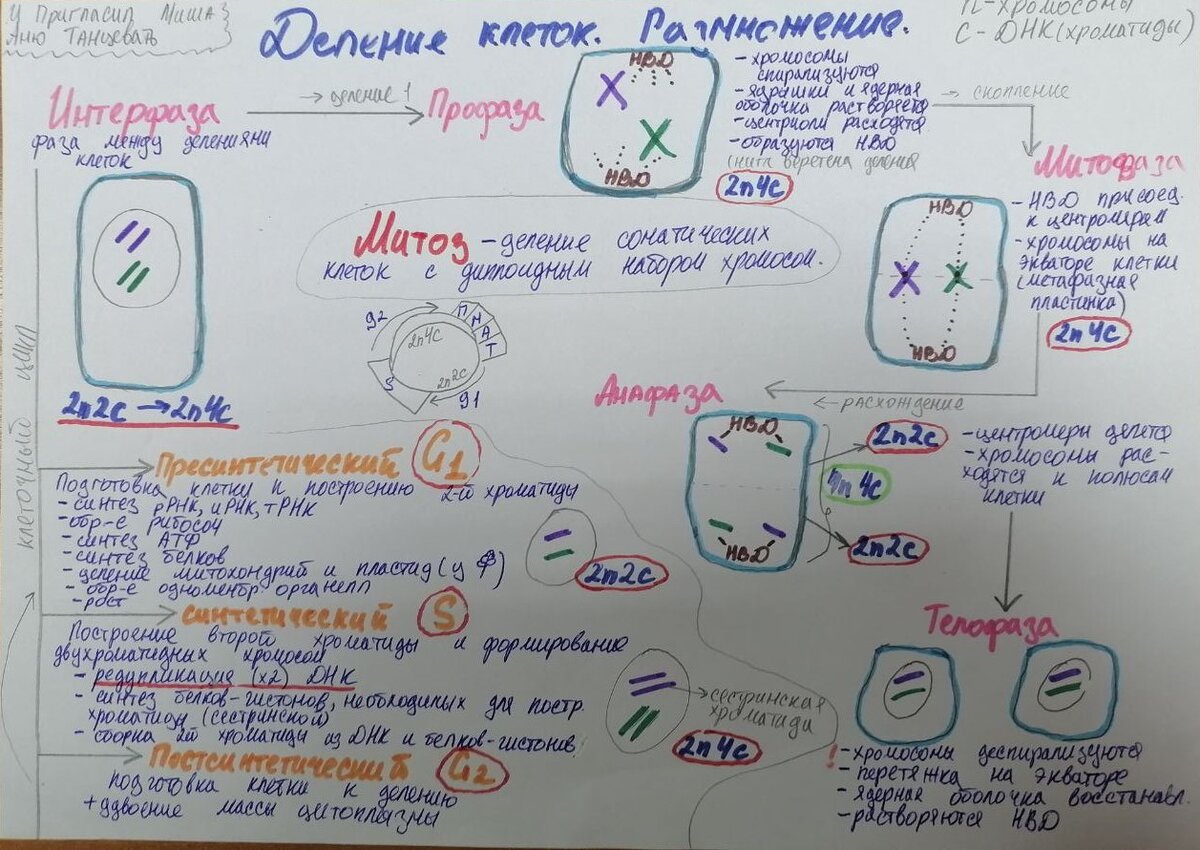 У Пригласил Миша
Аню Танцевать
Деление клеток. Размножение.
n-хромосомы
С-ДНК(хроматиды)
Интерфаза
→ деление 1
фаза между делениями
клеток
Профаза
НВD
НВD
- хромосомы
спирализуются
- ядрышки и ядерная
оболочка растворяется
- центриоли расходятся
- образуются НВD
(нити веретена деления
2n4c
→ скопление
Митофаза
НВD
НВD
- НВD присоед.
к центромерам
- хромосомы на
экваторе клетки
(метафазная
пластинка)
2n4c
Митоз - деление соматических
клеток с диплоидным набором хромосом.
g2
П
М
А
Т
2n4c
S
2n2c
g1
2n2c → 2n4c
клеточный цикл
Анафаза
← расхождение
НВD
НВD
2n2c
4n4c
2n2c
- центромеры делятся
- хромосомы рас-
ходятся к полюсам
клетки
Пресинтетический G1
Подготовка клетки к построению 2-ой хроматиды
- синтез рРНК, иРНК, тРНК
- обр-е рибосом
- синтез АТФ
- синтез белков
- деление митохондрий и пластид (у Ф)
- обр-е одномембр органелл
- рост
2n2c
синтетический S
Построение второй хроматиды и формирование
двухроматидных хромосом
- редупликация (х2) ДНК
- синтез белков-гистонов, необходимых для постр.
хроматиды (сестринской)
- сборка 2й хроматиды из ДНК и белков-гистонов
сестринская
хроматида
2n4c
Постсинтетический G2
подготовка клетки к делению
+ удвоение массы цитоплазмы
Телофаза
! - хромосомы деспирализуются
- перетяжка на экваторе
- ядерная оболочка восстанавл.
- растворяются НВD